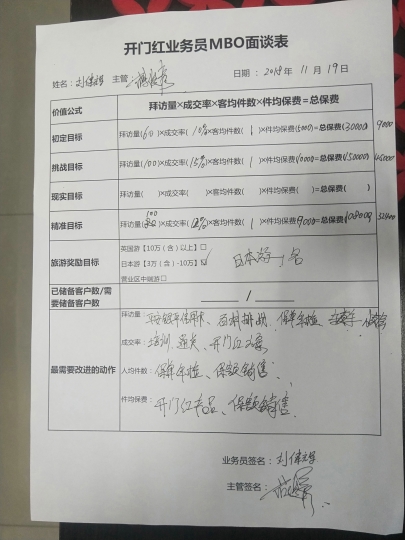 开门红业务员MBO面谈表
姓名： 主管 日期：2018年11月19日
价值公式 拜访量×成交率×客均件数×件均保费=总保费
初定目标 拜访量(60)×成交率(10%)×客均件数(1)×件均保费(5000)=总保费(30000) 9000
挑战目标 拜访量(100)×成交率(15%)×客均件数(1)×件均保费(10000)=总保费(150000) 45000
现实目标 拜访量( )×成交率( )×客均件数( )×件均保费( )=总保费( )
精准目标 拜访量(100)×成交率(12%)×客均件数(1)×件均保费(9000)=总保费(108000) 32400
旅游奖励目标
英国游【10万（含）以上】□
日本游【3万（含）-10万】☑ 日本游一名
营业区中端游□
已储备客户数/需要储备客户数 /
最需要改进的动作
拜访量： 平安银行信用卡、百科挑战、保单年检、
成交率：培训、通关、开门红
人均件数：保单年检、保额销售、
件均保费：开门红产品、保额销售
业务员签名：
主管签名：